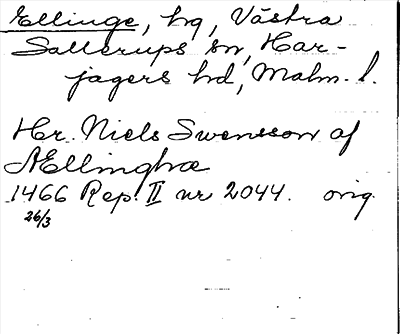 Ellinge, hg, Västra
Sallerups sn, Har-
jagers hd, Malm. l.
Hr. Niels Swensson af
Ællinghæ
1466 Rep. II nr 2044. orig.
26/3